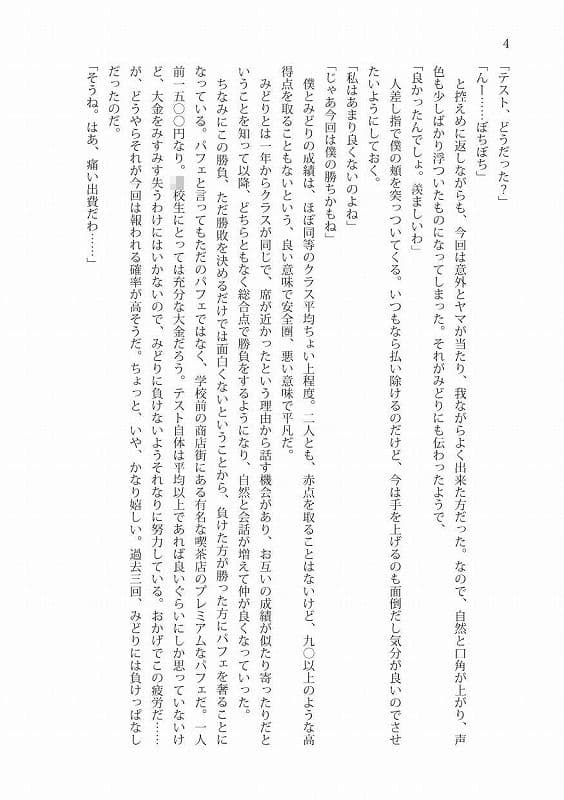 4
「テスト、どうだった？」
「んー……ぼちぼち」
　と控えめに返しながらも、今回は意外とヤマが当たり、我ながらよく出来た方だった。なので、自然と口角が上がり、声
色も少しばかり浮ついたものになってしまった。それがみどりにも伝わったようで、
「良かったんでしょ。羨ましいわ」
　人差し指で僕の頬を突っついてくる。いつもなら払い除けるのだけど、今は手を上げるのも面倒だし気分が良いのでさせ
たいようにしておく。
「私はあまり良くないのよね」
「じゃあ今回は僕の勝ちかもね」
　僕とみどりの成績は、ほぼ同等のクラス平均ちょい上程度。二人とも、赤点を取ることはないけど、九〇以上のような高
得点を取ることもないという、良い意味で安全圏、悪い意味で平凡だ。
　みどりとは一年からクラスが同じで、席が近かったという理由から話す機会があり、お互いの成績が似たり寄ったりだと
いうことを知って以降、どちらともなく総合点で勝負をするようになり、自然と会話が増えて仲が良くなっていった。
　ちなみにこの勝負、ただ勝敗を決めるだけでは面白くないということから、負けた方が勝った方にパフェを奢ることに
なっている。パフェと言ってもただのパフェではなく、学校前の商店街にある有名な喫茶店のプレミアムなパフェだ。一人
前一五〇〇円なり。校生にとっては充分な大金だろう。テスト自体は平均以上であれば良いぐらいにしか思っていないけ
ど、大金をみすみす失うわけにはいかないので、みどりに負けないようそれなりに努力している。おかげでこの疲労だ……
が、どうやらそれが今回は報われる確率が高そうだ。ちょっと、いや、かなり嬉しい。過去三回、みどりには負けっぱなし
だったのだ。
「そうね。はあ、痛い出費だわ……」